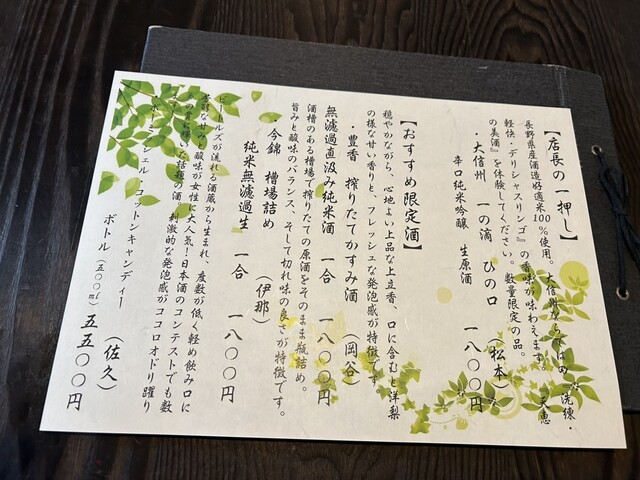 【店長の一押し】
長野県産酒造好適米100%使用。大信州
洗練・
軽快・デリシャスリンゴ』の香味が味わえます。
天恵
の美酒』を体験してください。数量限定の品。
・大信州 一の滴 ひの口 (松本)
辛口純米吟醸 生原酒 一八〇〇円
【おすすめ限定酒】
穏やかながら、心地よい上品な上立香、口に含むと洋梨
の様な甘い香りと、フレッシュな発泡感が特徴です
・豊香 搾りたてかすみ酒 (岡谷)
無濾過直汲み純米酒 一合 一八〇〇円
酒槽のある槽場で搾りたての原酒をそのまま瓶詰め。
旨みと酸味のバランス、そして切れ味の良さが特徴です。
・今錦 槽場詰め (伊那)
純米無濾過生 一合 一八〇〇円
ビートルズが流れる酒蔵から生まれ、度数が低く軽め飲み口に
な甘さと酸味が女性に大人気!日本酒のコンテストでも数
の賞を輝いた話題の酒 刺激的な発泡感がココロオドリ躍り
シェル コットンキャンディー (佐久)
ボトル(五〇〇ml) 五五〇〇円